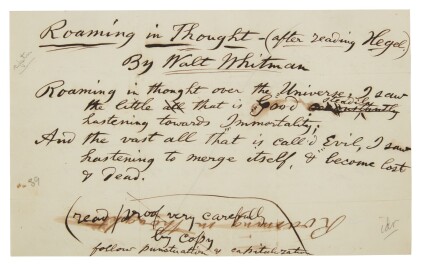 Roaming in Thought—(after reading Hegel)
By Walt Whitman
Roaming in thought over the Universe, I saw
the little all that is Good steadily
hastening towards Immortality;
And the vast all that is call'd Evil, I saw
hastening to merge itself, & become lost
& dead.
(read proof very carefully
by copy
follow punctuation & capitalization